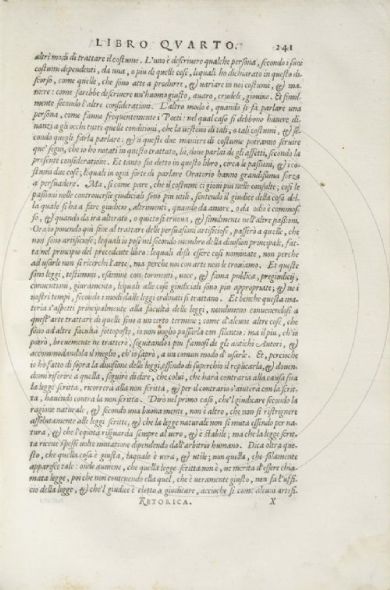 LIBRO QVARTO. 241
altri modi di trattare il costume. L'uno è descriuere qualche persona, secondo i suoi
costumi dependenti, da una, o piu di quelle cose, lequali ho dichiarato in questo di-
scorso, come quelle, che sono atte a produrre, & uariare in noi costumi, & ma-
niere: come sarebbe descriuere un'huomo giusto, auaro, crudele, giouine. Et simil-
mente secondo l'altre considerationi. L'altro modo è, quando si fa parlare una
persona, come fanno frequentemente i Poeti: nel qual caso si debbono hauere di-
nanzi a gli occhi tutte quelle conditioni, che la uestono di tali, o tali costumi, & se-
condo quegli farla parlare: & in questi due maniere di costume potranno seruire
que' segni, che io ho notati in questo trattato, la, doue parla de gli affetti, secondo la
presente consideratione. Et tanto sia detto in questo libro, circa le passioni, & i co-
stumi due cose, lequali in ogni sorte di parlare Oratorio hanno grandissima forza
a persuadere. Ma, si come pare, che il costume ci gioui piu nelle consulte; cosi le
passioni nelle controuersie giudiciali sono piu utili, sentendo il giudice della cosa del-
la quale si ha a fare giudicio, altrimenti, quando da amore, o da odio è commos-
so, & quando da ira alterato, o quieto si ritruoua, & similmente nell'altre passioni.
Ora io ponendo quì fine al trattare delle persuasioni artificiose, passerò a quelle, che
non sono artificiose; lequali io posi nel secondo membro della diuision principale, fat-
ta nel principio del precedente libro: lequali dissi essere cosi nominate, non perche
ad usarle non si ricerchi l'arte, ma perche noi con arte non le trouiamo. Et queste
sono leggi, testimoni, esamine con tormento, uoce, & fama publica, pregiudicij,
conuentioni, giuramento, lequali alle cose giudiciali sono piu appropriate; & ne i
nostri tempi, secondo i modi dalle leggi ordinati si trattano. Et benche questa ma-
teria s'aspetti principalmente alla facultà delle leggi, nondimeno conuenendosi a
quest'arte trattarsi di quelle fino a un certo termine; come d'alcune altre cose, che
sono ad altre facultà sottoposto, io non uoglio passarla con silentio: ma il piu, ch'io
potrò, breuemente ne tratterò, seguitando i piu famosi de gli antichi Autori, &
accommodandola il meglio, ch'io saprò, a un comun modo d'usarle. Et, percioche
io ho fatto di sopra la diuisione delle leggi, essendo di superchio il replicarla, & douen-
domi riferire a quella, seguirò di dire, che colui, che harà contraria alla causa sua
la legge scritta, ricorrerà alla non scritta, & per il contrario s'aiuterà con la scrit-
ta, hauendo contra la non scritta. Dirò nel primo caso, che'l giudicare secondo la
ragione naturale, & secondo una buona mente, non è altro, che non si ristrignere
assolutamente alle leggi scritte, & che la legge naturale non si muta essendo per na-
tura, & che l'equità risguarda sempre al uero, & è stabile; ma che la legge scrit-
ta riceue spesse uolte mutatione dipendendo dall'arbitrio humano. Dica oltra que-
sto, che quella cosa è giusta, laquale è uera, & utile; non quella, che solamente
apparisce tale: onde auuiene, che quella legge scritta non è, ne merita d'essere chia-
mata legge, perche non contenendo ella quel, che è ueramente giusto, non fa l'uffi-
cio della legge, & che'l giudice è eletto a giudicare, accioche si come alcuni artifi-
RETORICA. X